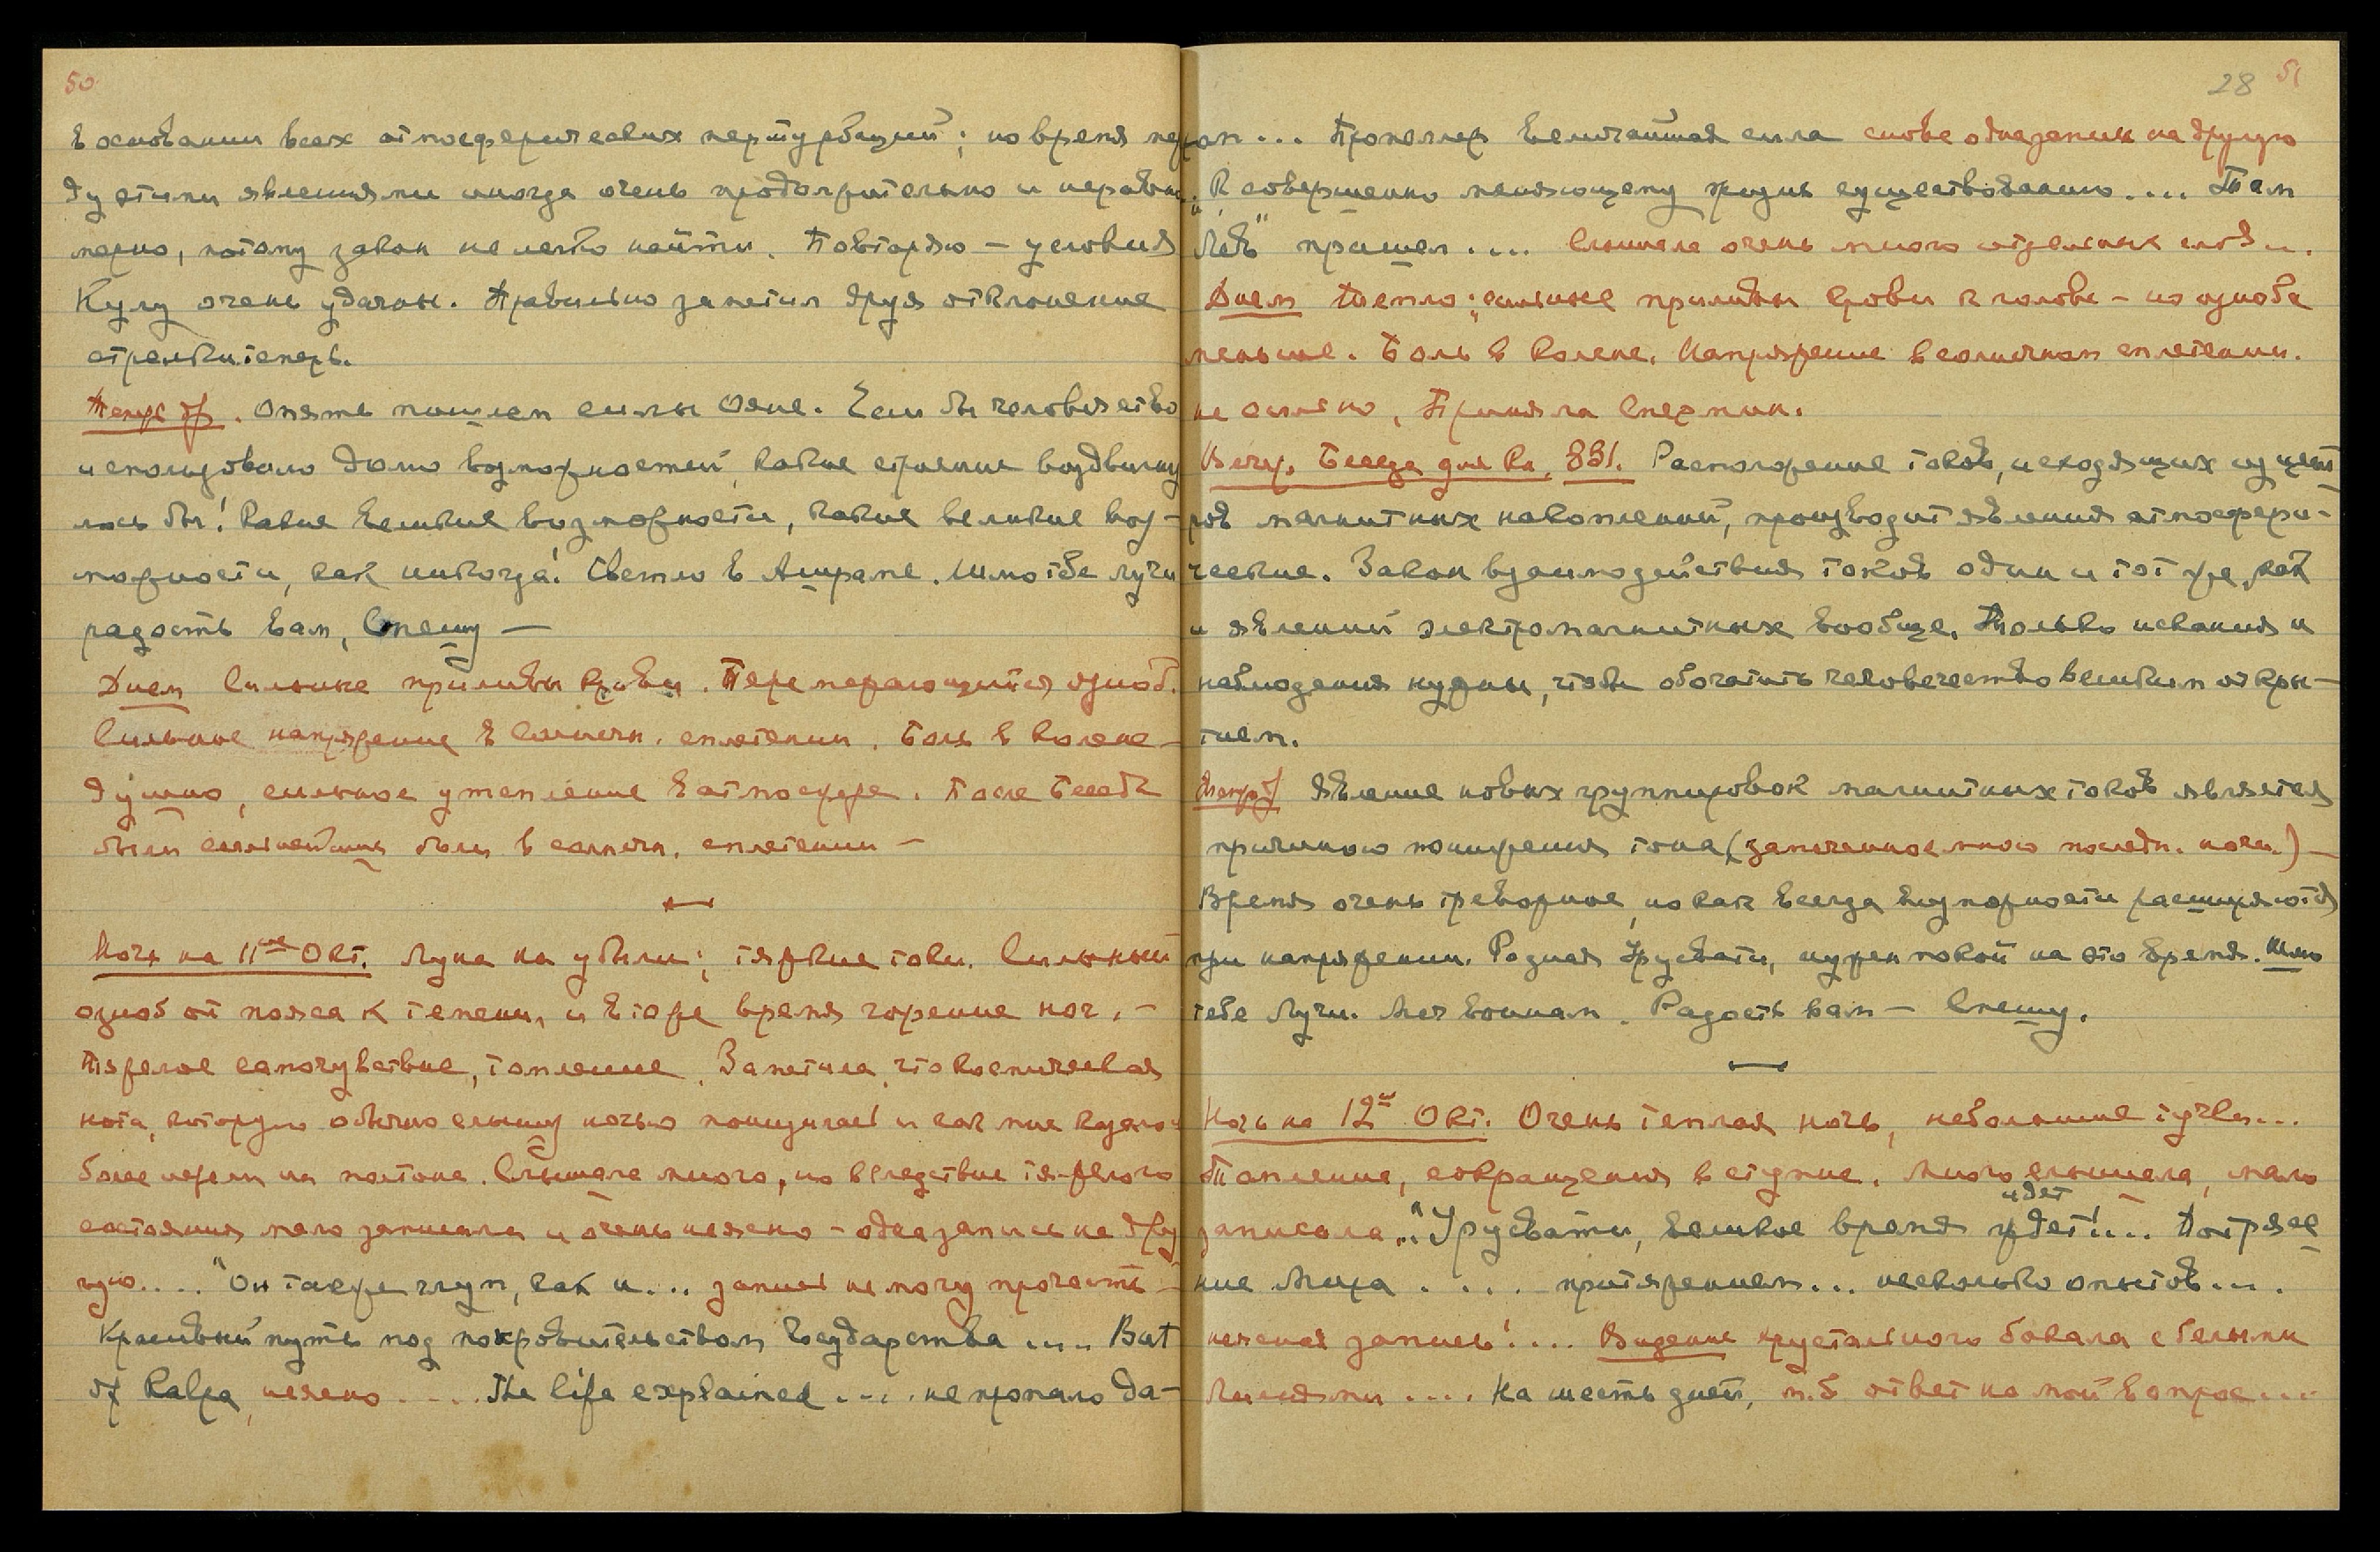 50
в основании всех атмосферических пертурбаций; но время меж
ду этими явлениями иногда очень продолжительно и неравно
мерно, потому закон не легко найти. Повторяю — условия
Кулу очень удачны. Правильно заметил друг отклонение
стрелки теперь.
Теперь др. Опять пошлем силы Ояне. Если бы человечество
использовало долю возможностей, какие строение воздвигну
лись бы! Какие великие возможности, какие великие воз-
можности, как никогда! Светло в Ашраме. Шлю тебе лучи
радость вам, Спешу —
Днем Сильные приливы крови. Перемежающийся озноб.
Сильное напряжение в солнечн. сплетении. Боль в колене —
душно, сильное утомление в атмосфере. После Беседы
были сильнейшие боли в солнечн. сплетении —
Ночь на 11ое Окт. Луна на убыли; тяжкие токи. Сильный
озноб от пояса к темени, и в то же время горение ног. —
Тяжелое самочувствие, томление. Заметила, что космическая
нота, которую обычно слышу ночью понизилась и как мне казалось
более чем на полтона. Слышала много, но вследствие тяжелого
состояния мало записала и очень неясно — одна запись на дру
гую.... "Он также глуп, как и... запись не могу прочесть —
Красивый путь под покровительством Государства .... But
of Kalpa, неясно .... The life explained .... не пропало да-
28 51
ром... Пропеллер Величайшая сила снова одна запись на другую
"К совершенно меняющему жизнь существованию.... Там
"Лев" пришел .... Слышала очень много отдельных слов ...
Днем Тепло; сильные приливы крови к голове — но озноба
меньше. Боль в колене. Напряжение в солнечном сплетении.
не сильно, Приняла Спермин.
Вечер. Беседа для Кн. 881. Расположение токов, исходящих из цент
ров магнитных накоплений, производит явления атмосфери-
ческие. Закон взаимодействия токов один и тот же, как
и явлений электромагнитных вообще. Только искания и
наблюдения нужны, чтобы обогатить человечество великим откры-
тием.
Теперь др Явление новых группировок магнитных токов является
причиною понижения тона (замеченное мною последн. ночи.) —
Время очень тревожное, но как всегда возможности расширяются
при напряжении. Родная Урусвати, нужен покой на это время. Шлю
тебе Лучи. Меч воинам. Радость вам — Спешу.
Ночь на 12ое Окт. Очень теплая ночь, небольшие тучки...
Томление, сокращения в ступне. Много слышала, мало
записала... "Урусвати, великое время идет!... Потрясе
идет
ние Мира .... притяжением... несколько опытов...
неясная запись!.... Видение хрустального бокала с белыми
Лилиями .... На шесть дней, м.б. ответ на мой вопрос...